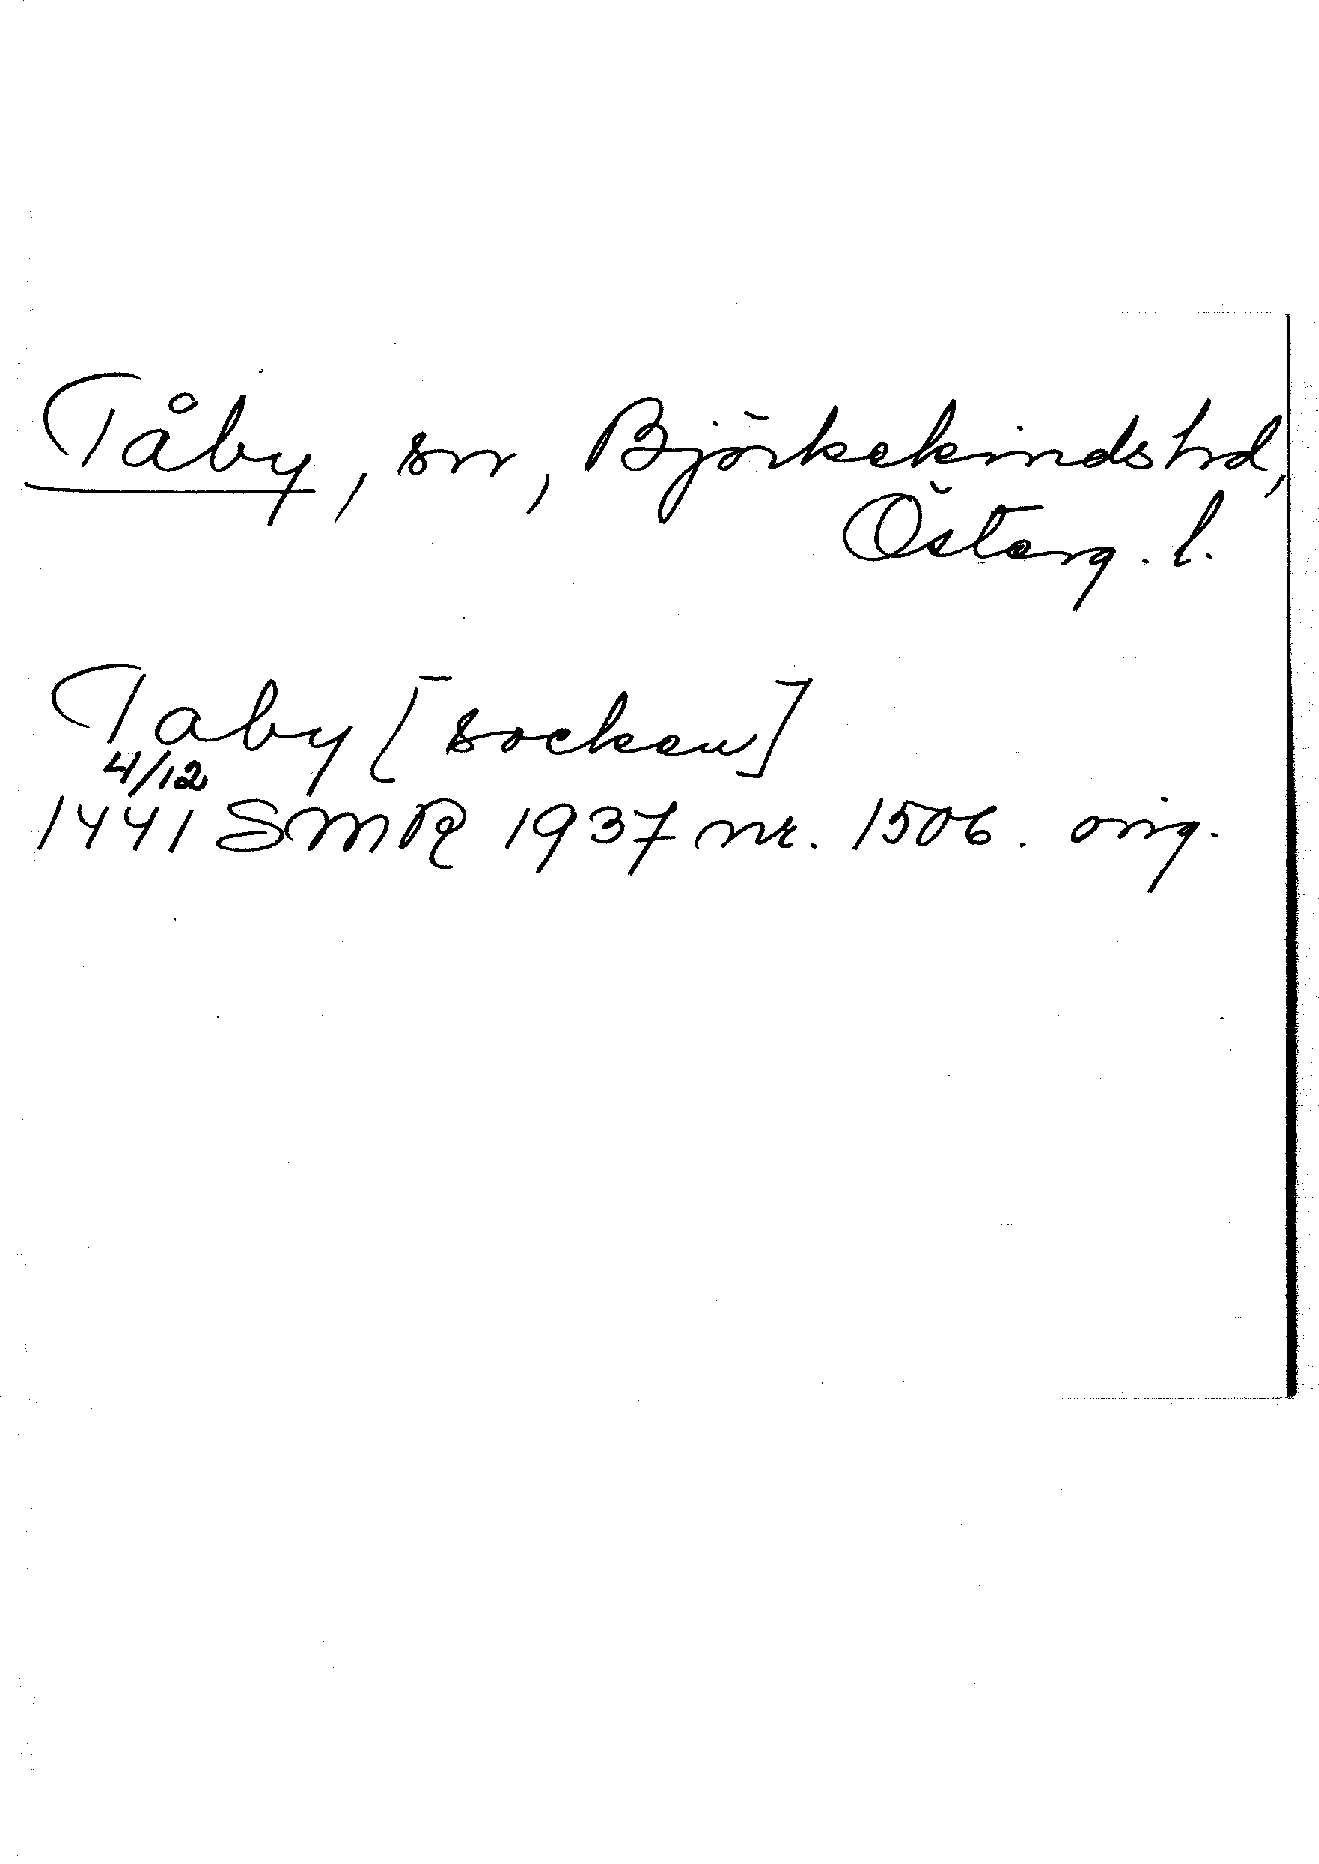 Tåby, sn, Björkekinds hd,
Österg. l.
Taby [socken]
4/12
1441 SMR 1937 nr. 1506. orig.